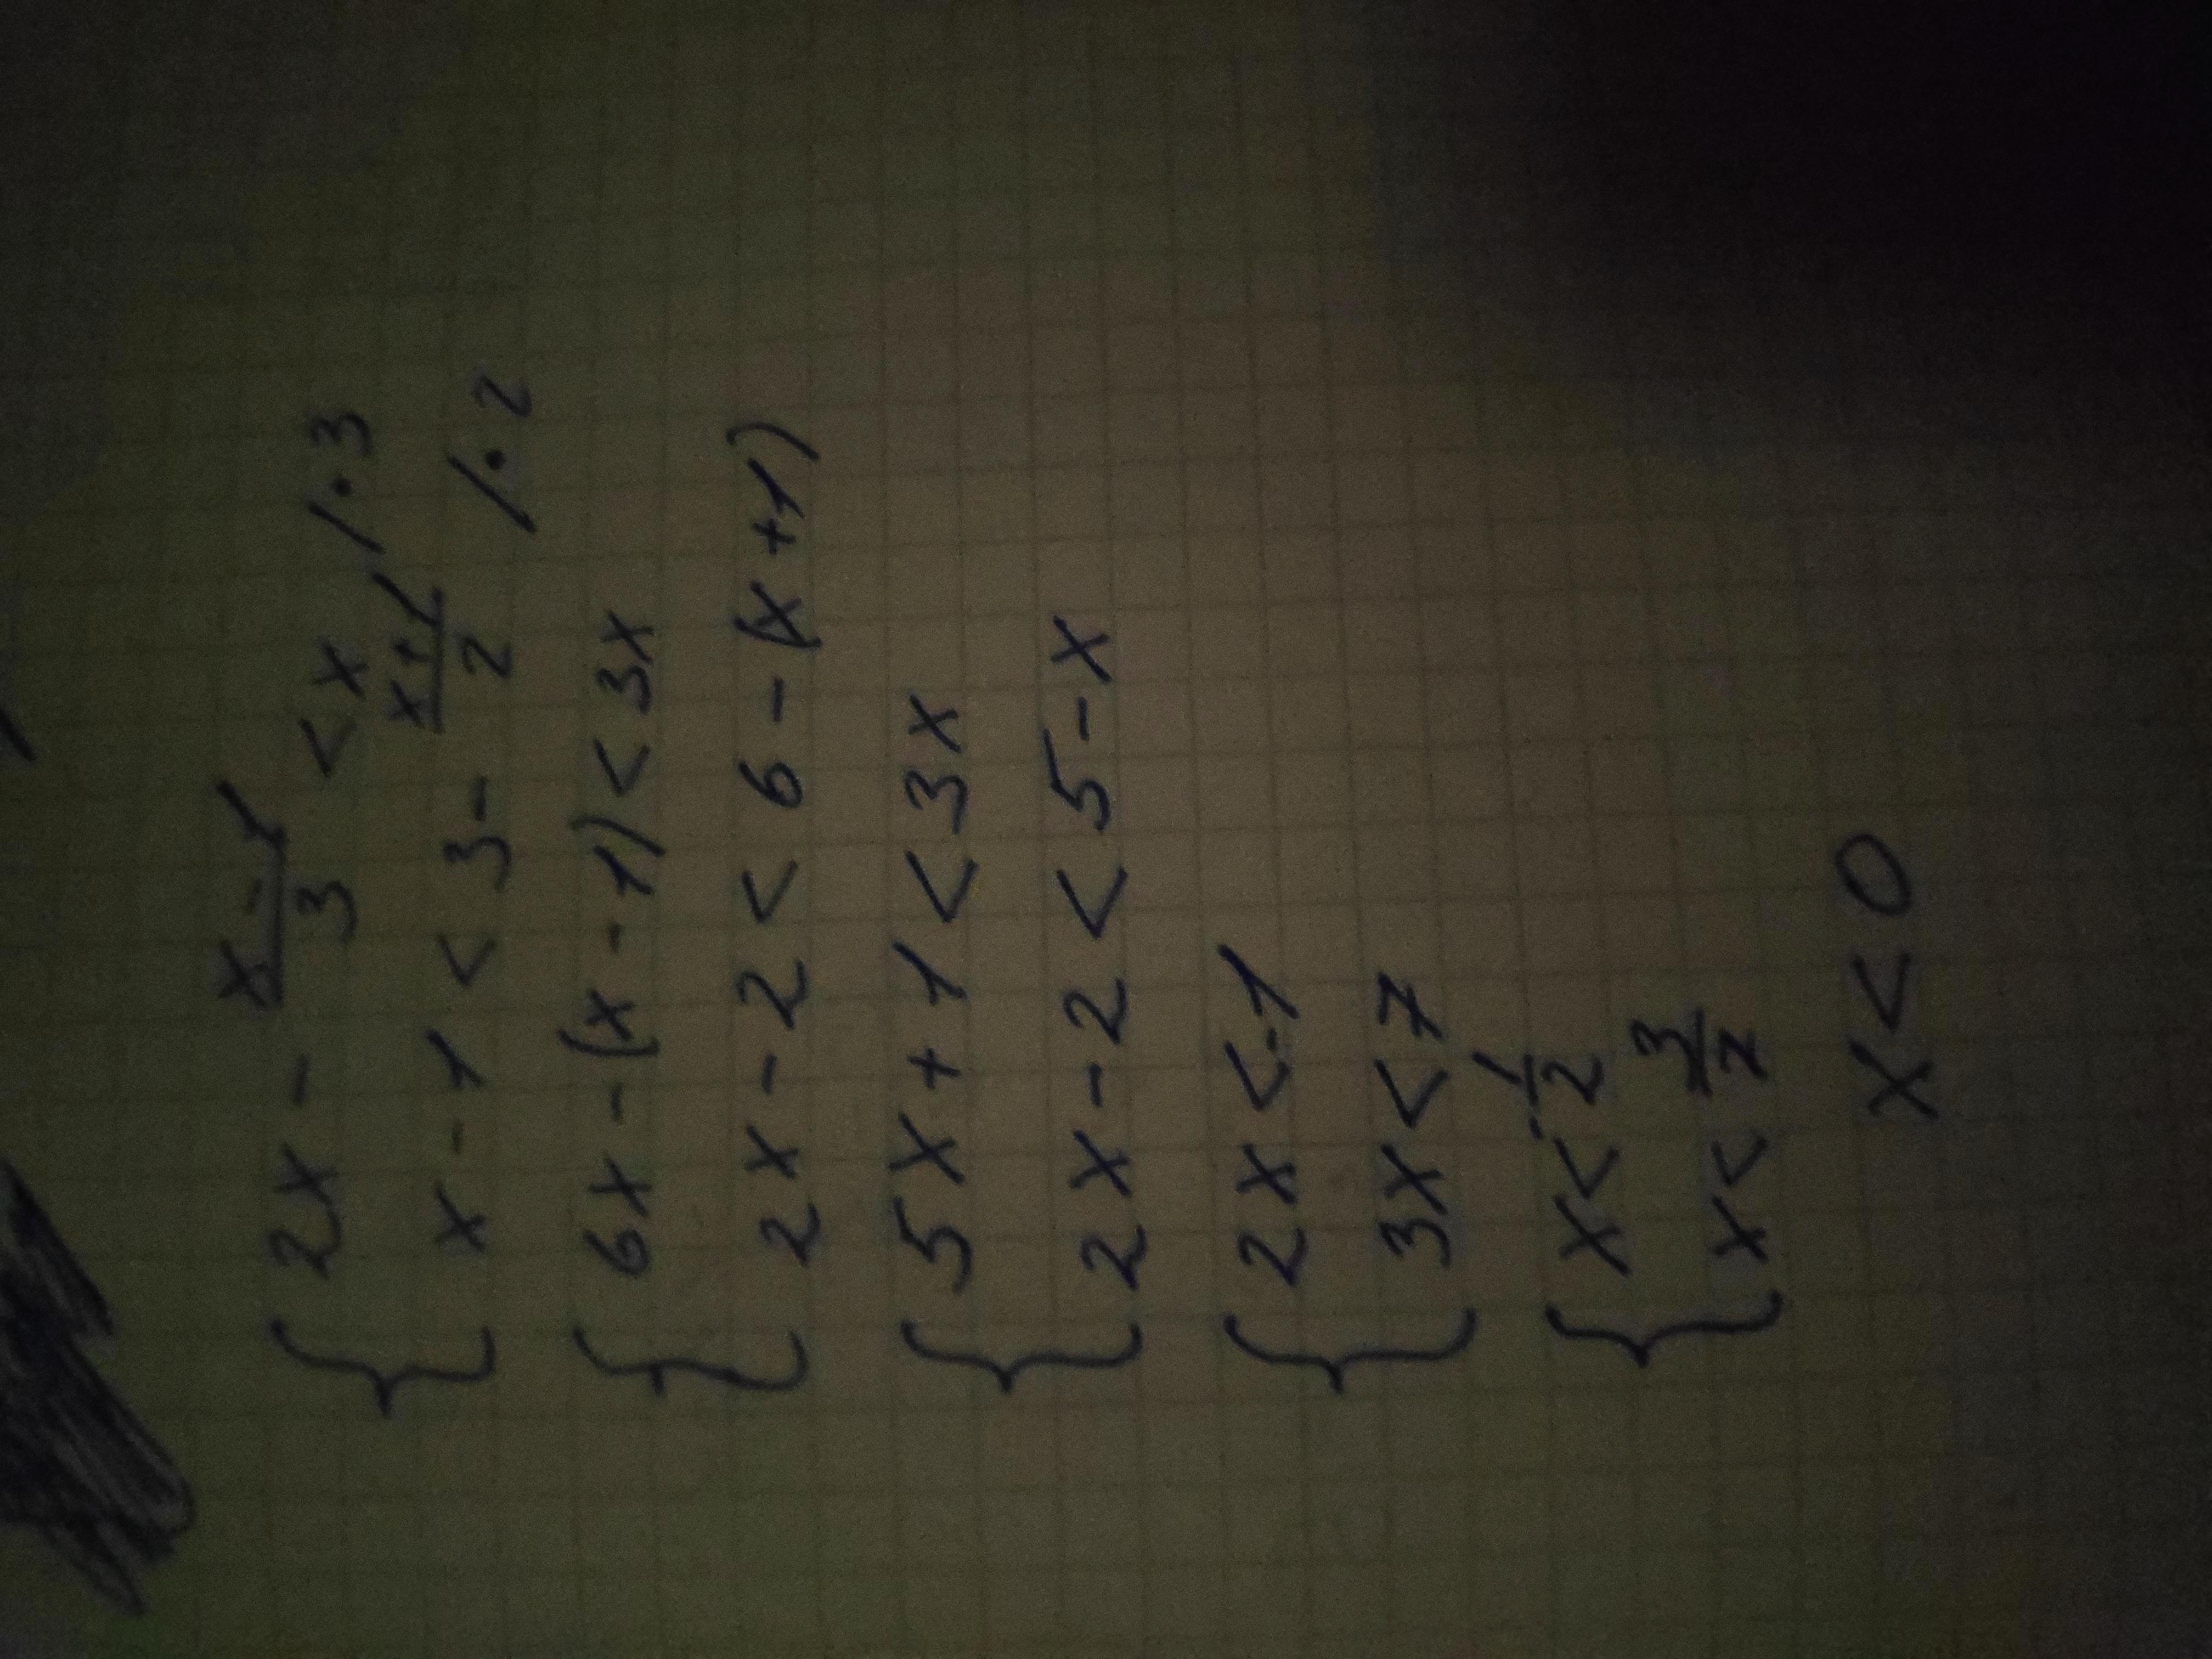 2x - x-1/3 < x /·3
x - 1 < 3 - x+1/2 /·2
6x - (x - 1) < 3x
2x - 2 < 6 - (x + 1)
5x + 1 < 3x
2x - 2 < 5 - x
2x < -1
3x < 7
x < -1/2
x < 3/7
x < 0